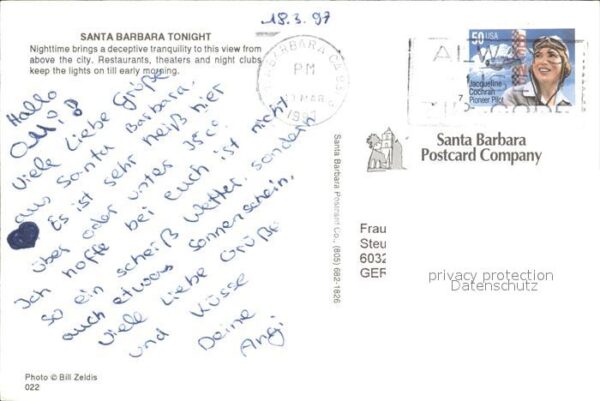 18.3.97
SANTA BARBARA TONIGHT
Nighttime brings a deceptive tranquility to this view from
above the city. Restaurants, theaters and night clubs
keep the lights on till early morning.
Hallo
Viele Liebe Grüße
aus Santa Barbara.
Es ist sehr heiß hier
über oder unter 35c°.
Ich hoffe bei euch ist nicht
so ein scheiß Wetter. sondern
auch etwas Sonnenschein.
Viele Liebe Grüße
und Küsse
Deine
Angi
Photo © Bill Zeldis
022
BARBARA CA
PM
MAR
50 USA
Jacqueline
Cochran
Pioneer Pilot
Santa Barbara
Postcard Company
Santa Barbara Postcard Co., (805) 682-1826
Frau
Steu
6032
GER
privacy protection
Datenschutz